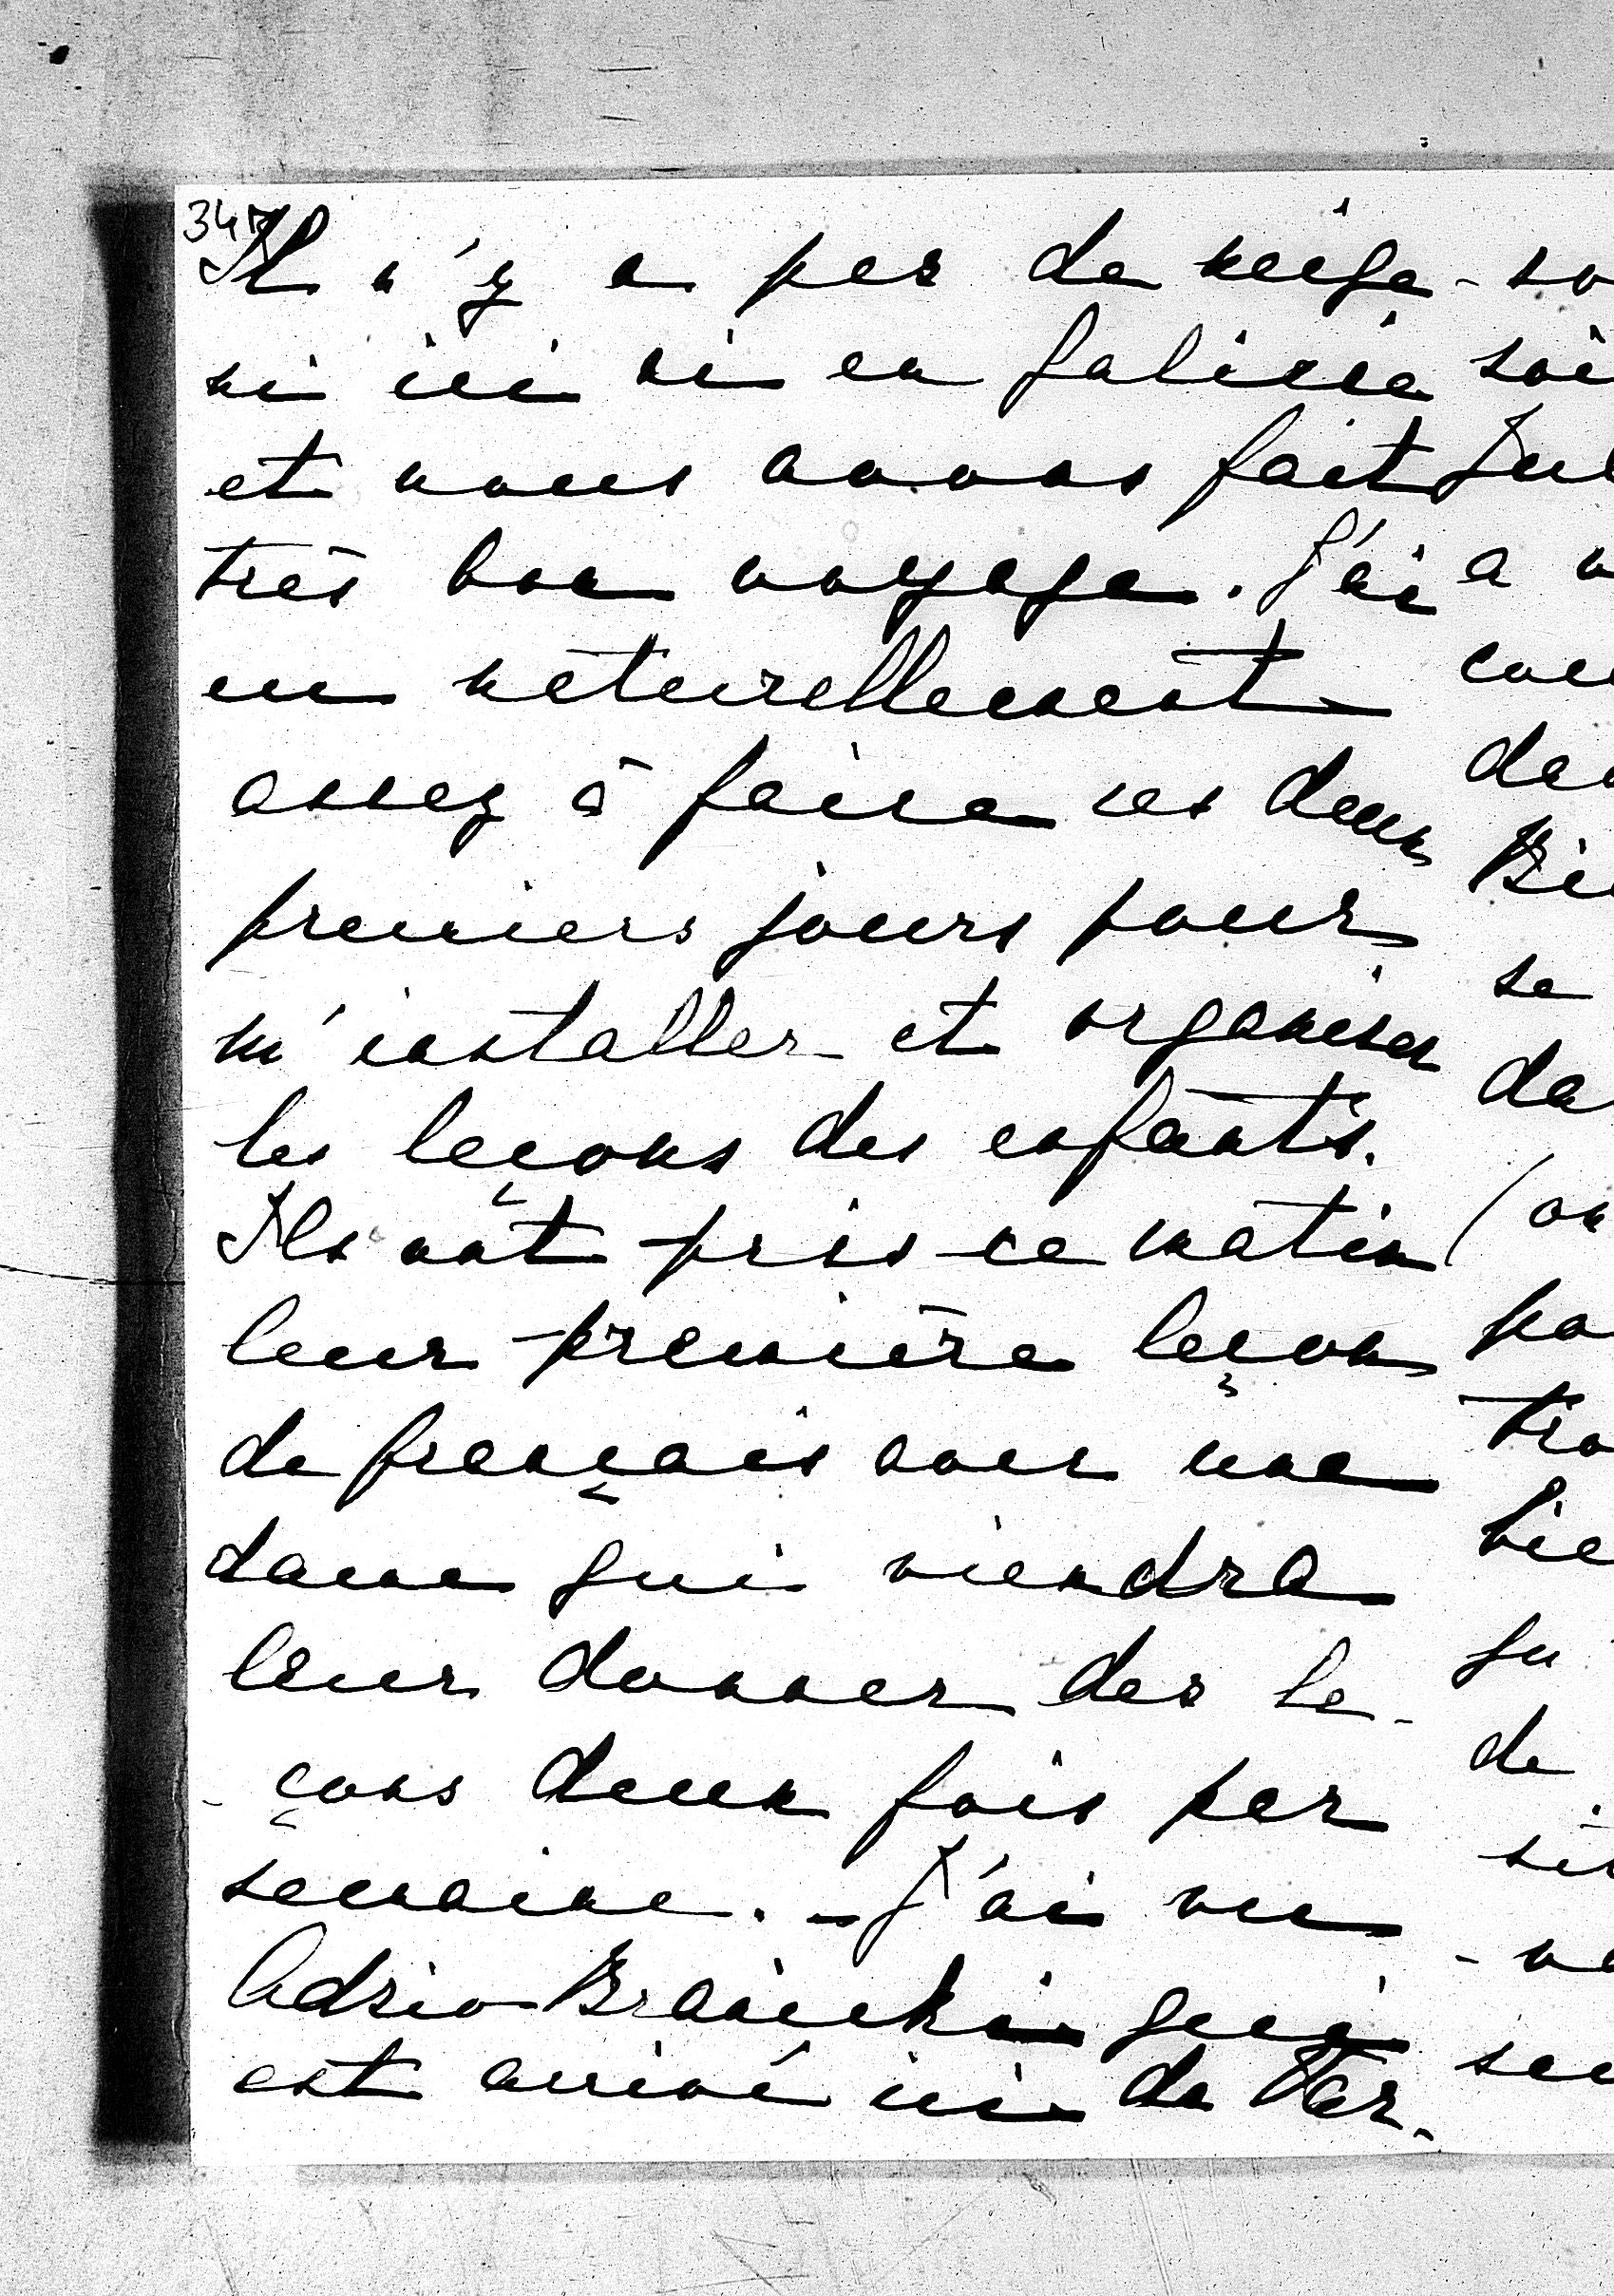 347
Il n'y a pas de neige
ni ici ni en Galicie
et nous avons fait
très bon voyage. J'ai
eu naturellement
assez à faire ces deux
premiers jours pour
m'installer et organiser
les leçons des enfants.
Ils ont pris ce matin
leur première leçon
de français avec une
dame qui viendra
leur donner des le-
-çons deux fois par
semaine. - J'ai vu
Adzio Branicki qui
est arrivé ici de Var-
- so
soi
Jul
a
cou
de
Bi
se
da
(on
pa
tro
bie
qu'
de
su
- ve